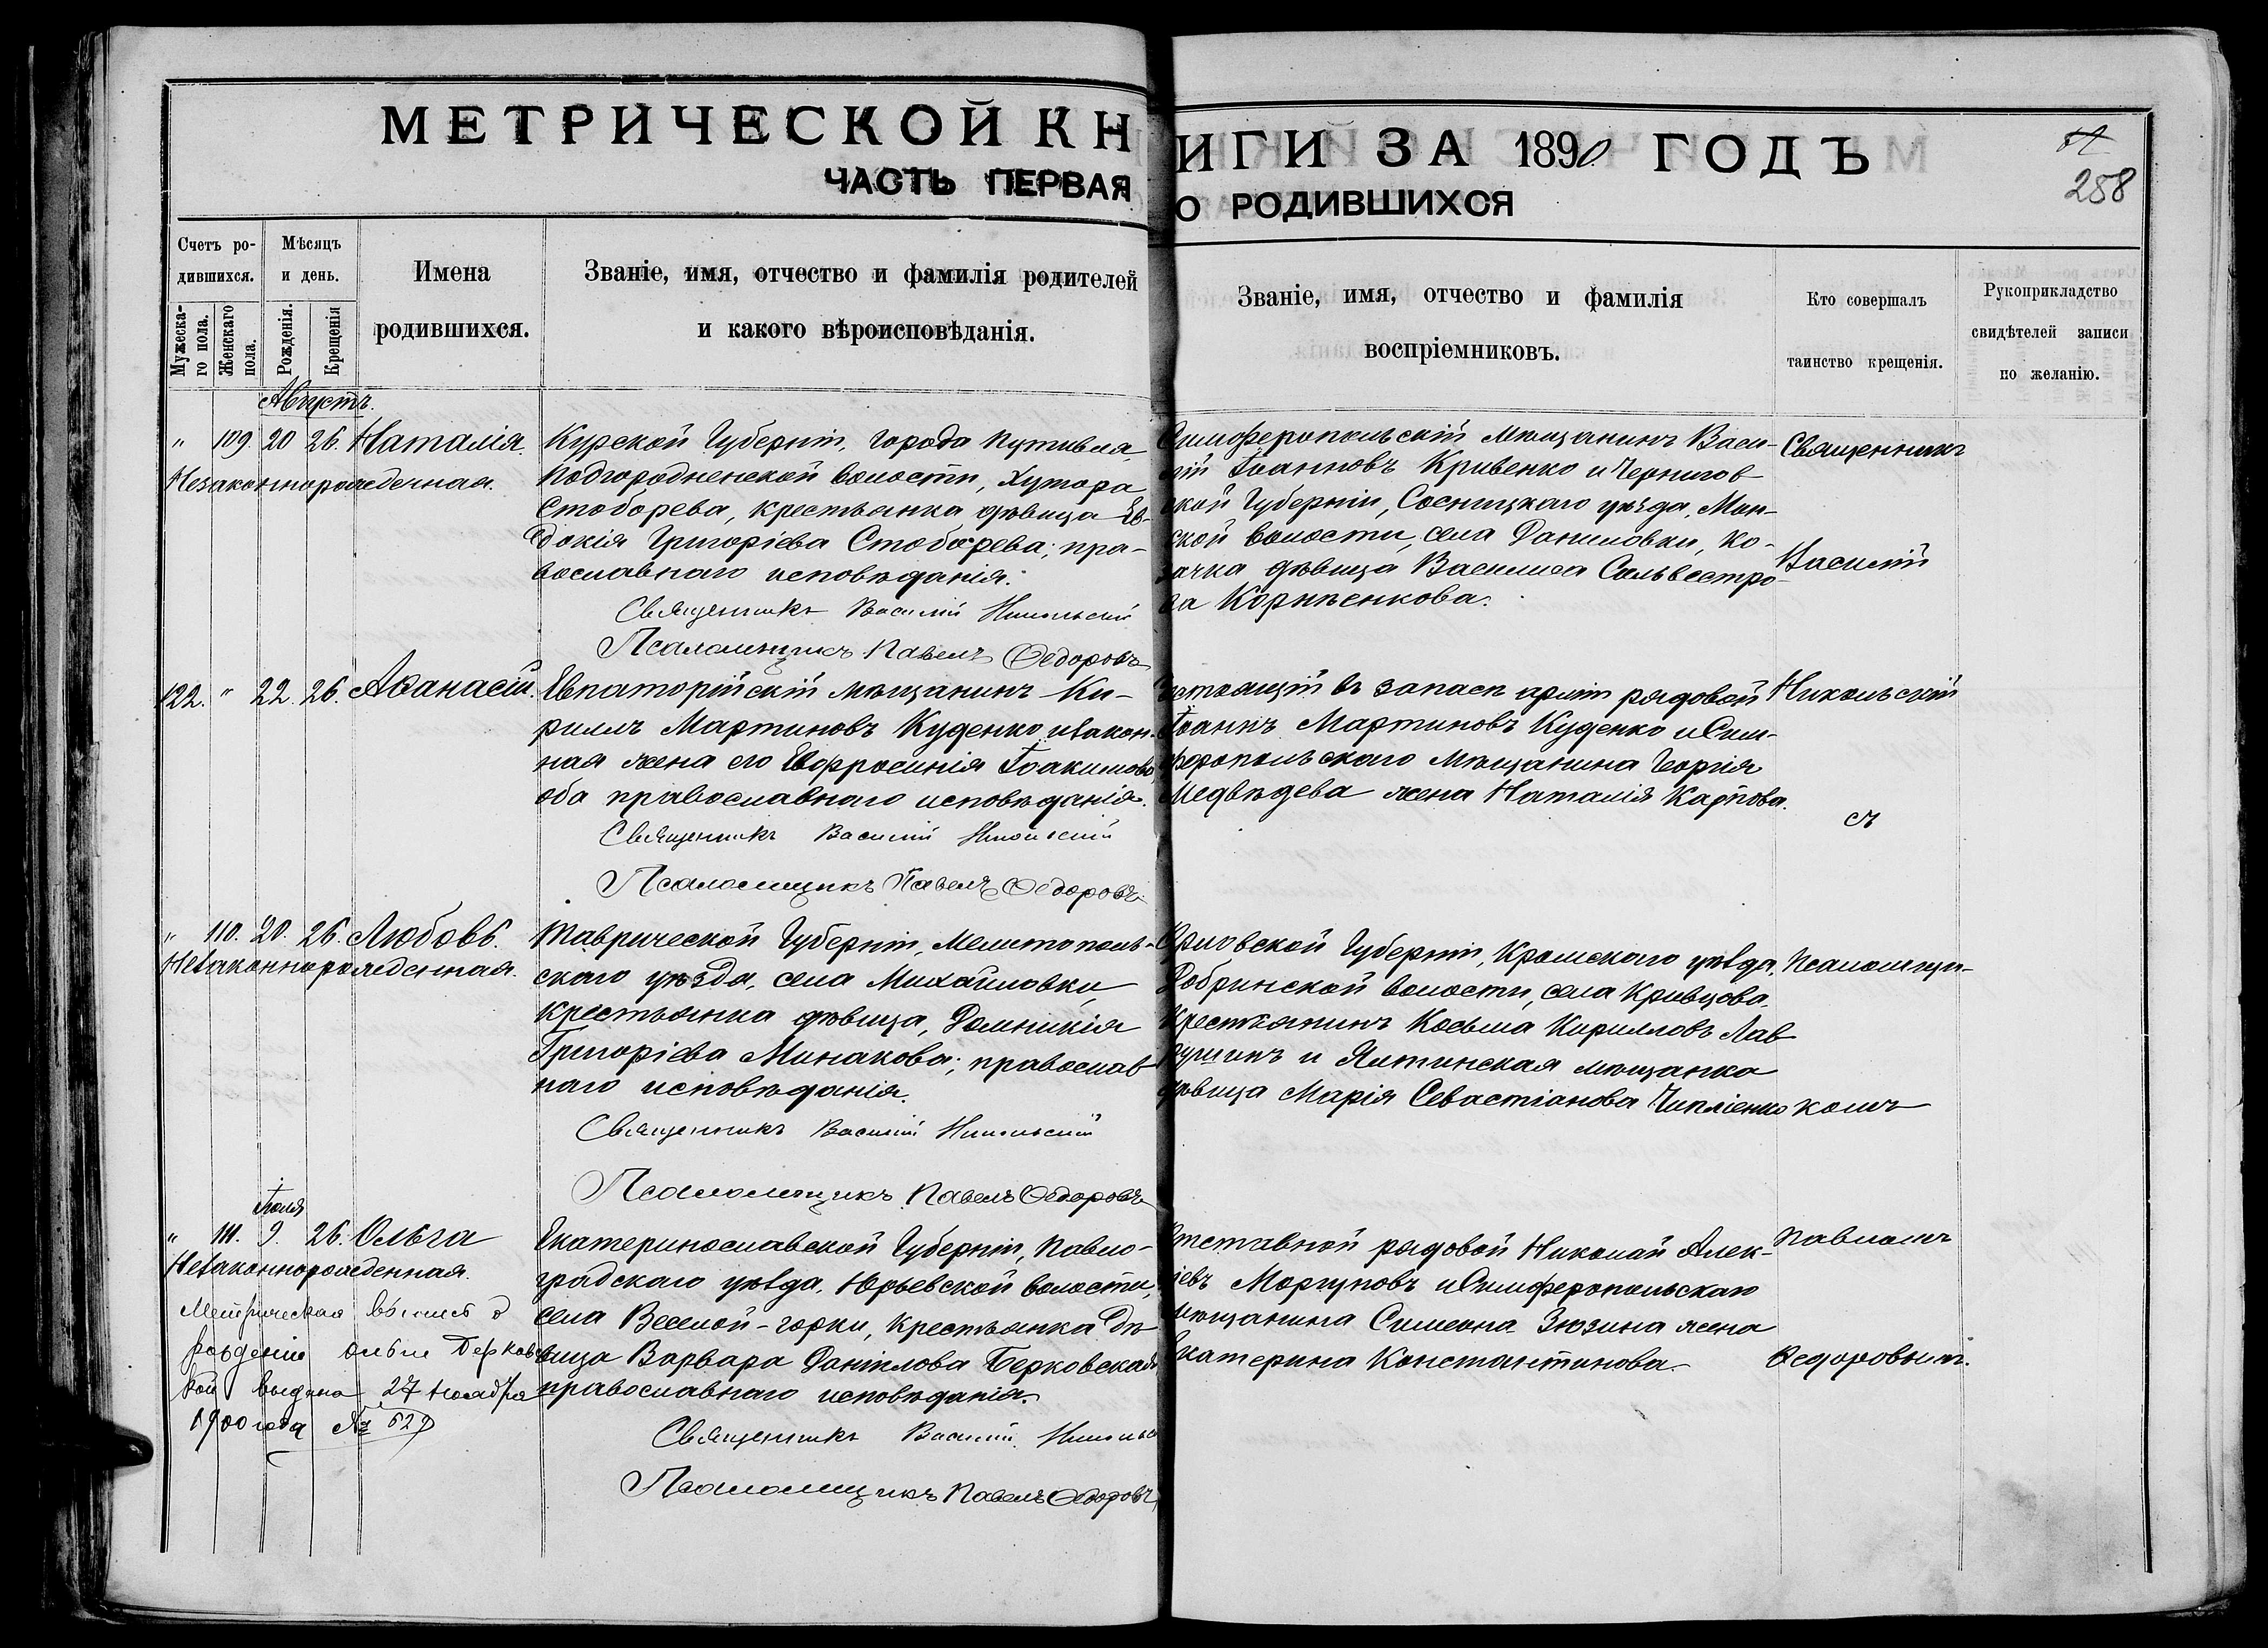 МЕТРИЧЕСКОЙ КНИГИ ЗА 1890 ГОДЪ
258
ЧАСТЬ ПЕРВАЯ О РОДИВШИХСЯ
Счетъ родившихся.
Мужескаго пола.
Женскаго пола.
Мѣсяцъ и день.
Рожденія.
Крещенія
Имена родившихся.
Званіе, имя, отчество и фамилія родителей
и какого вѣроисповѣданія.
Званіе, имя, отчество и фамилія
воспріемниковъ.
Кто совершалъ
таинство крещенія.
Рукоприкладство
свидѣтелей записи
по желанію.
Августъ.
" 109. 20 26. Наталія.
Незаконнорожденная.
Курской Губерніи, города Путивля,
Подгородненской волости, хутора
Стоборева, крестьянка дѣвица Ев-
докія Григоріева Стоборева; пра-
вославнаго исповѣданія.
Священникъ Василій Никольскій
Псаломщикъ Павелъ Ѳедоровъ
Симферопольскій мѣщанинъ Васи-
лій Іоанновъ Кривенко и Чернигов
ской Губерніи, Сосницкаго уѣзда, Мен-
ской волости, села Даниловки, ко-
зачка дѣвица Василиса Сильвестро-
ва Корнѣенкова.
Священникъ
Василій
122. " 22. 26. Аѳанасій.
Евпаторійскій мѣщанинъ Ки-
риллъ Мартиновъ Куденко и закон-
ная жена его Евфросинія Іоакимова,
оба православнаго исповѣданія.
Священникъ Василій Никольскій
Псаломщикъ Павелъ Ѳедоровъ
въ запасѣ арміи рядовой
Іоаннъ Мартиновъ Куденко и Сим-
феропольскаго мѣщанина Георгія
Медвѣдева жена Наталія Карпова.
Никольскій
съ
" 110. 20. 26. Любовь.
Незаконнорожденная.
Таврической Губерніи, Мелитополь-
скаго уѣзда, села Михайловки,
крестьянка дѣвица, Домникія
Григоріева Минакова; православ-
наго исповѣданія.
Священникъ Василій Никольскій
Псаломщикъ Павелъ Ѳедоровъ
Орловской Губерніи, Кромскаго уѣзда,
Добринской волости, села Кривцова,
крестьянинъ Косьма Кирилловъ Лав
рушинъ и Ялтинская мѣщанка
дѣвица Марія Севастіанова
Псаломщи-
комъ
Іюля
" 111. 9. 26. Ольга
Незаконнорожденная.
Метрическая выпись о
рожденіи Ольги Берковс
кой выдана 27 Ноября
1900 года № 629
Екатеринославской Губерніи, Павло-
градскаго уѣзда, Юрьевской волости,
села Веселой-горки, крестьянка дѣ-
вица Варвара Даніилова Берковская,
православнаго исповѣданія.
Священникъ Василій Никольс
Псаломщикъ Павелъ Ѳедоровъ
Отставной рядовой Николай Алек-
ѣевъ Моргуновъ и Симферопольскаго
мѣщанина Симеона Зюзина жена
Екатерина Константинова.
Павломъ
Ѳедоровымъ.